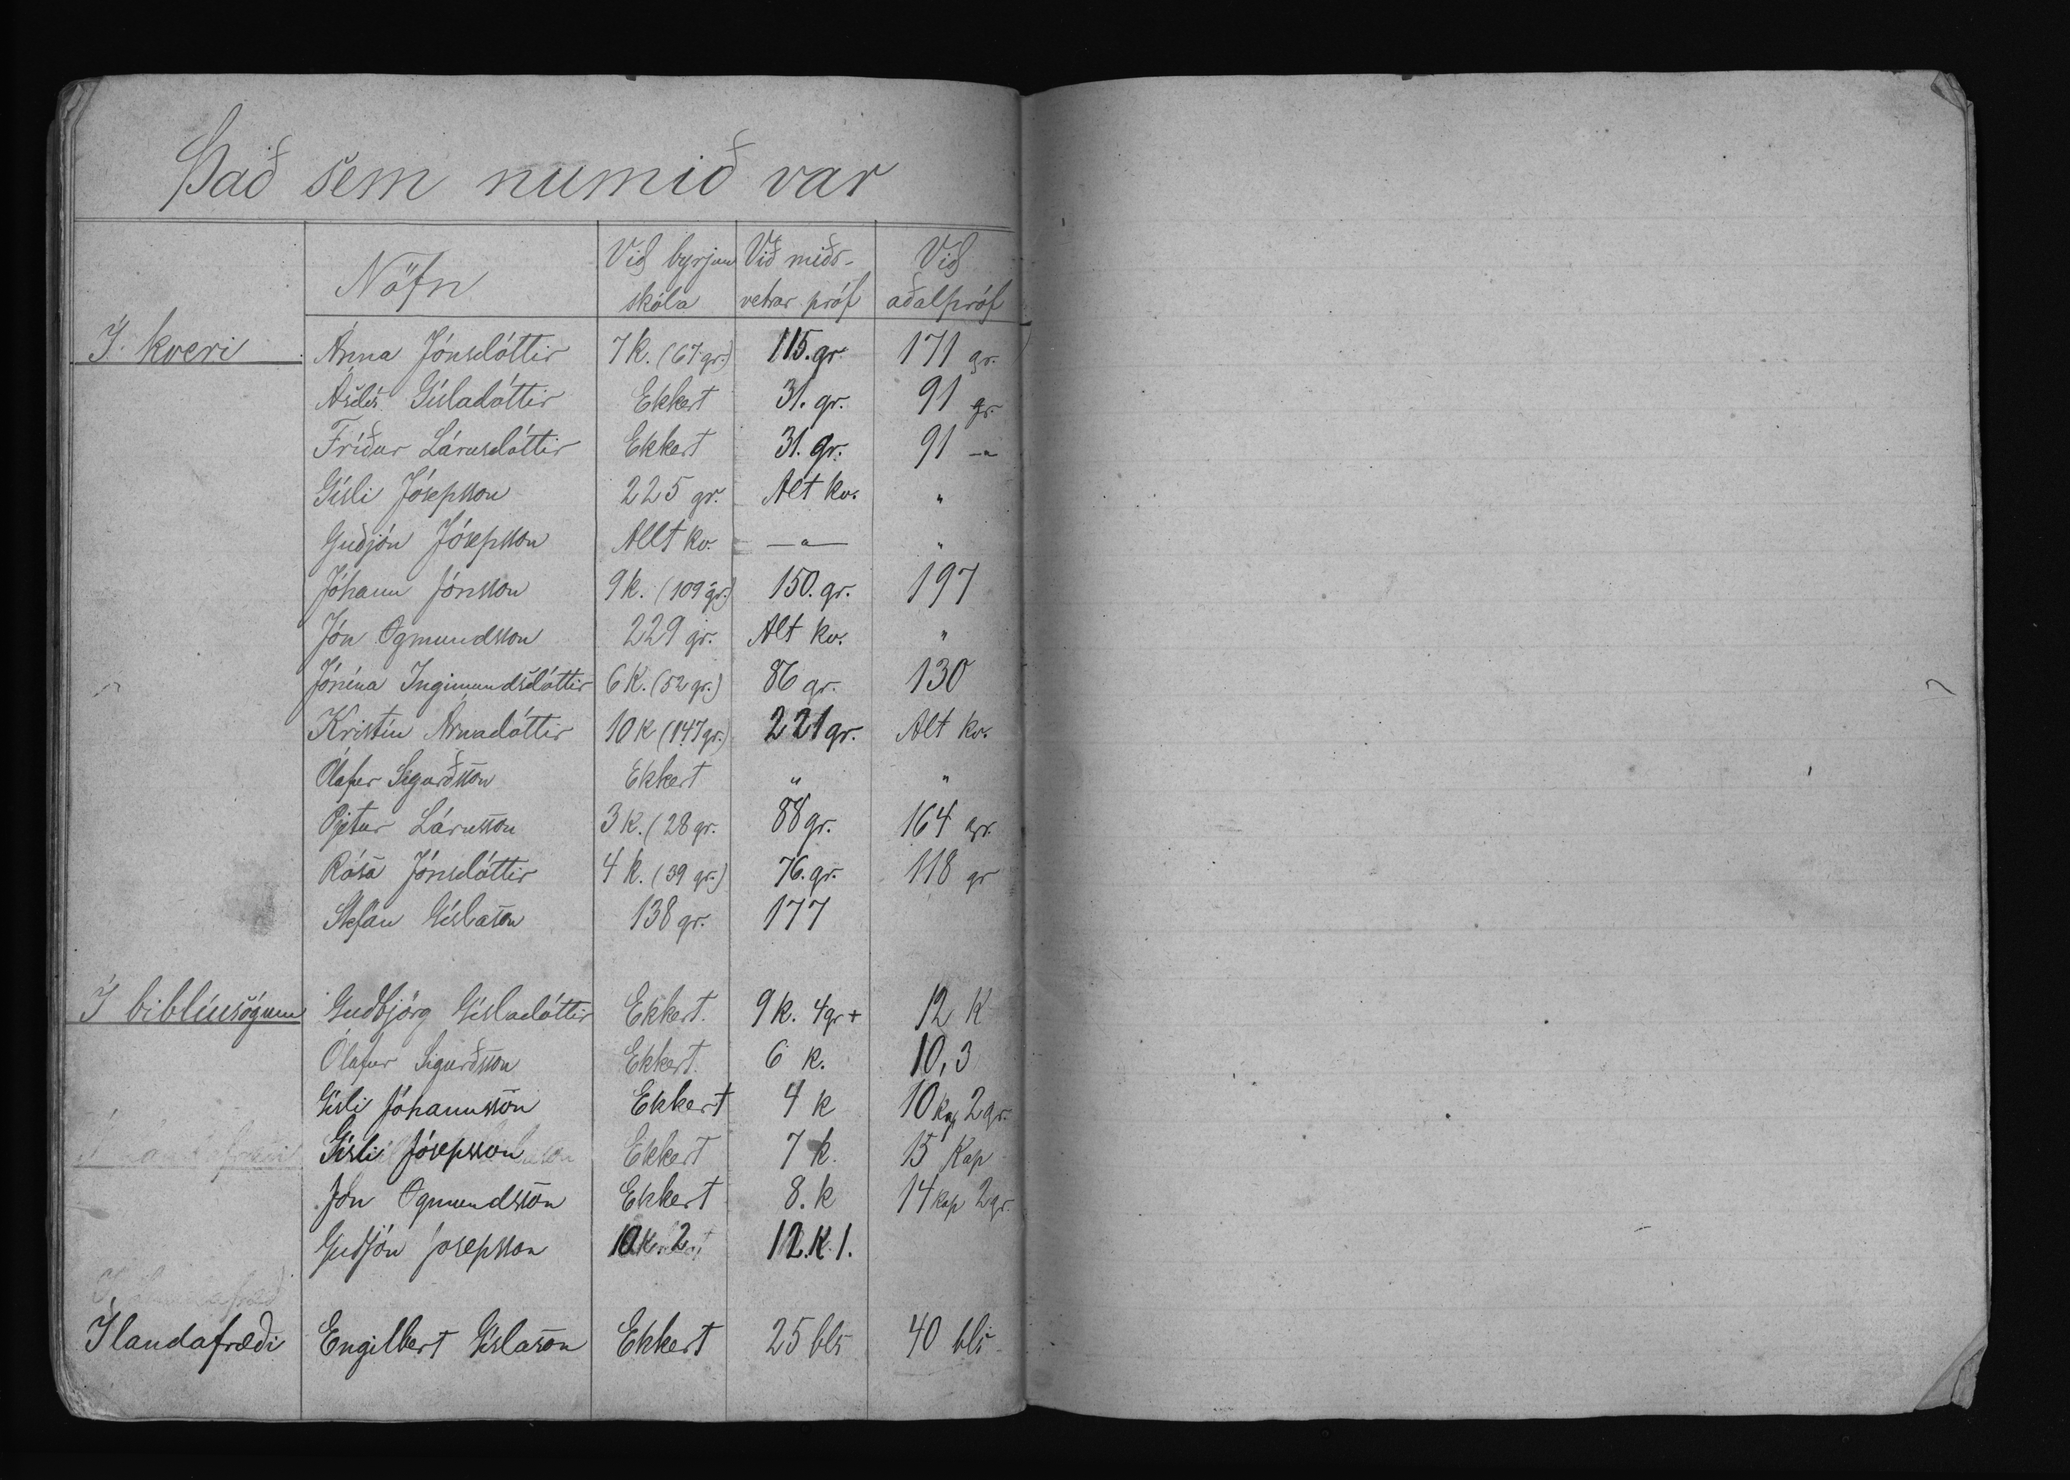 Það sem numið var
Nöfn Við byrjun skóla Við miðs-vetrar próf Við aðalpróf
Í kveri Anna Jónsdóttir 7 k. (67 gr.) 115. gr. 171 gr.
Ásdís Gísladóttir Ekkert 31. gr. 91 gr.
Fríður Lárusdóttir Ekkert 31. gr. 91 —"—
Gísli Jósepsson 225 gr. Alt kv. "
Guðjón Jósepsson Allt kv. —"— "
Jóhann Jónsson 9 k. (109 gr.) 150. gr. 197
Jón Ogmundsson 229 gr. Alt kv. "
Jónína Ingimundsdóttir 6 K. (52 gr.) 86 gr. 130
Kristín Árnadóttir 10 k (147 gr.) 221 gr. Alt kv.
Ólafur Sigurðsson Ekkert " "
Pjetur Lárusson 3 K. (28 gr. 88 gr. 164 gr.
Rósa Jónsdóttir 4 k. (39 gr.) 76. gr. 118 gr
Stefán Gíslason 138 gr. 177
Í biblíusögum Guðbjörg Gísladóttir Ekkert. 9 k. 4 gr + 12 K
Ólafur Sigurðsson Ekkert. 6 k. 10,3
Gísli Jóhannsson Ekkert 4 k 10 kap 2 gr.
Gísli Jósepsson Ekkert 7 k. 15 Kap
Jón Ogmundsson Ekkert 8. k 14 kap 2 gr.
Guðjón Josepsson 10 K. 2. 12. K 1.
Í landafræði Engilbert Gíslason Ekkert 25 bls 40 bls